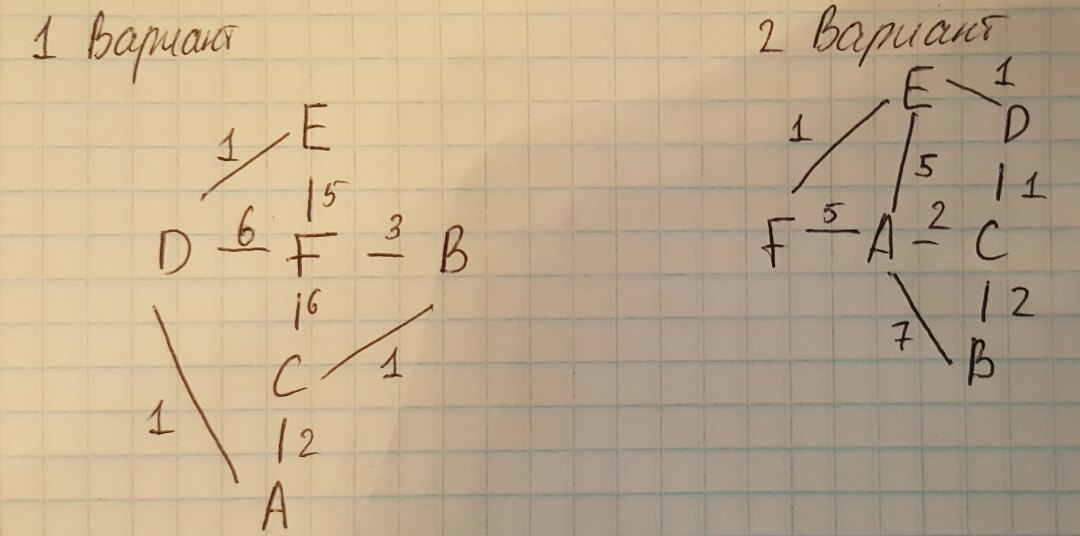 1 Вариант 2 Вариант
E 1 D
1 E
1 5
5
D 6 F 3 B
F 5 A 2 C
1
6
2
C 1
7 B
1
2
A